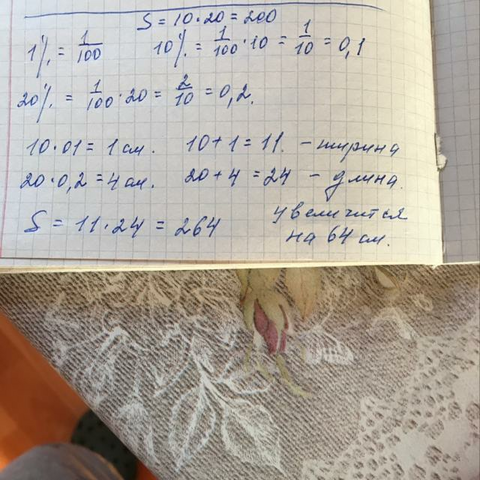 S = 10 · 20 = 200
1% = 1/100 10% = 1/100 · 10 = 1/10 = 0,1
20% = 1/100 · 20 = 2/10 = 0,2.
10 · 01 = 1 см. 10 + 1 = 11. - ширина
20 · 0,2 = 4 см. 20 + 4 = 24 - длина.
S = 11 · 24 = 264 увеличится
на 64 см.